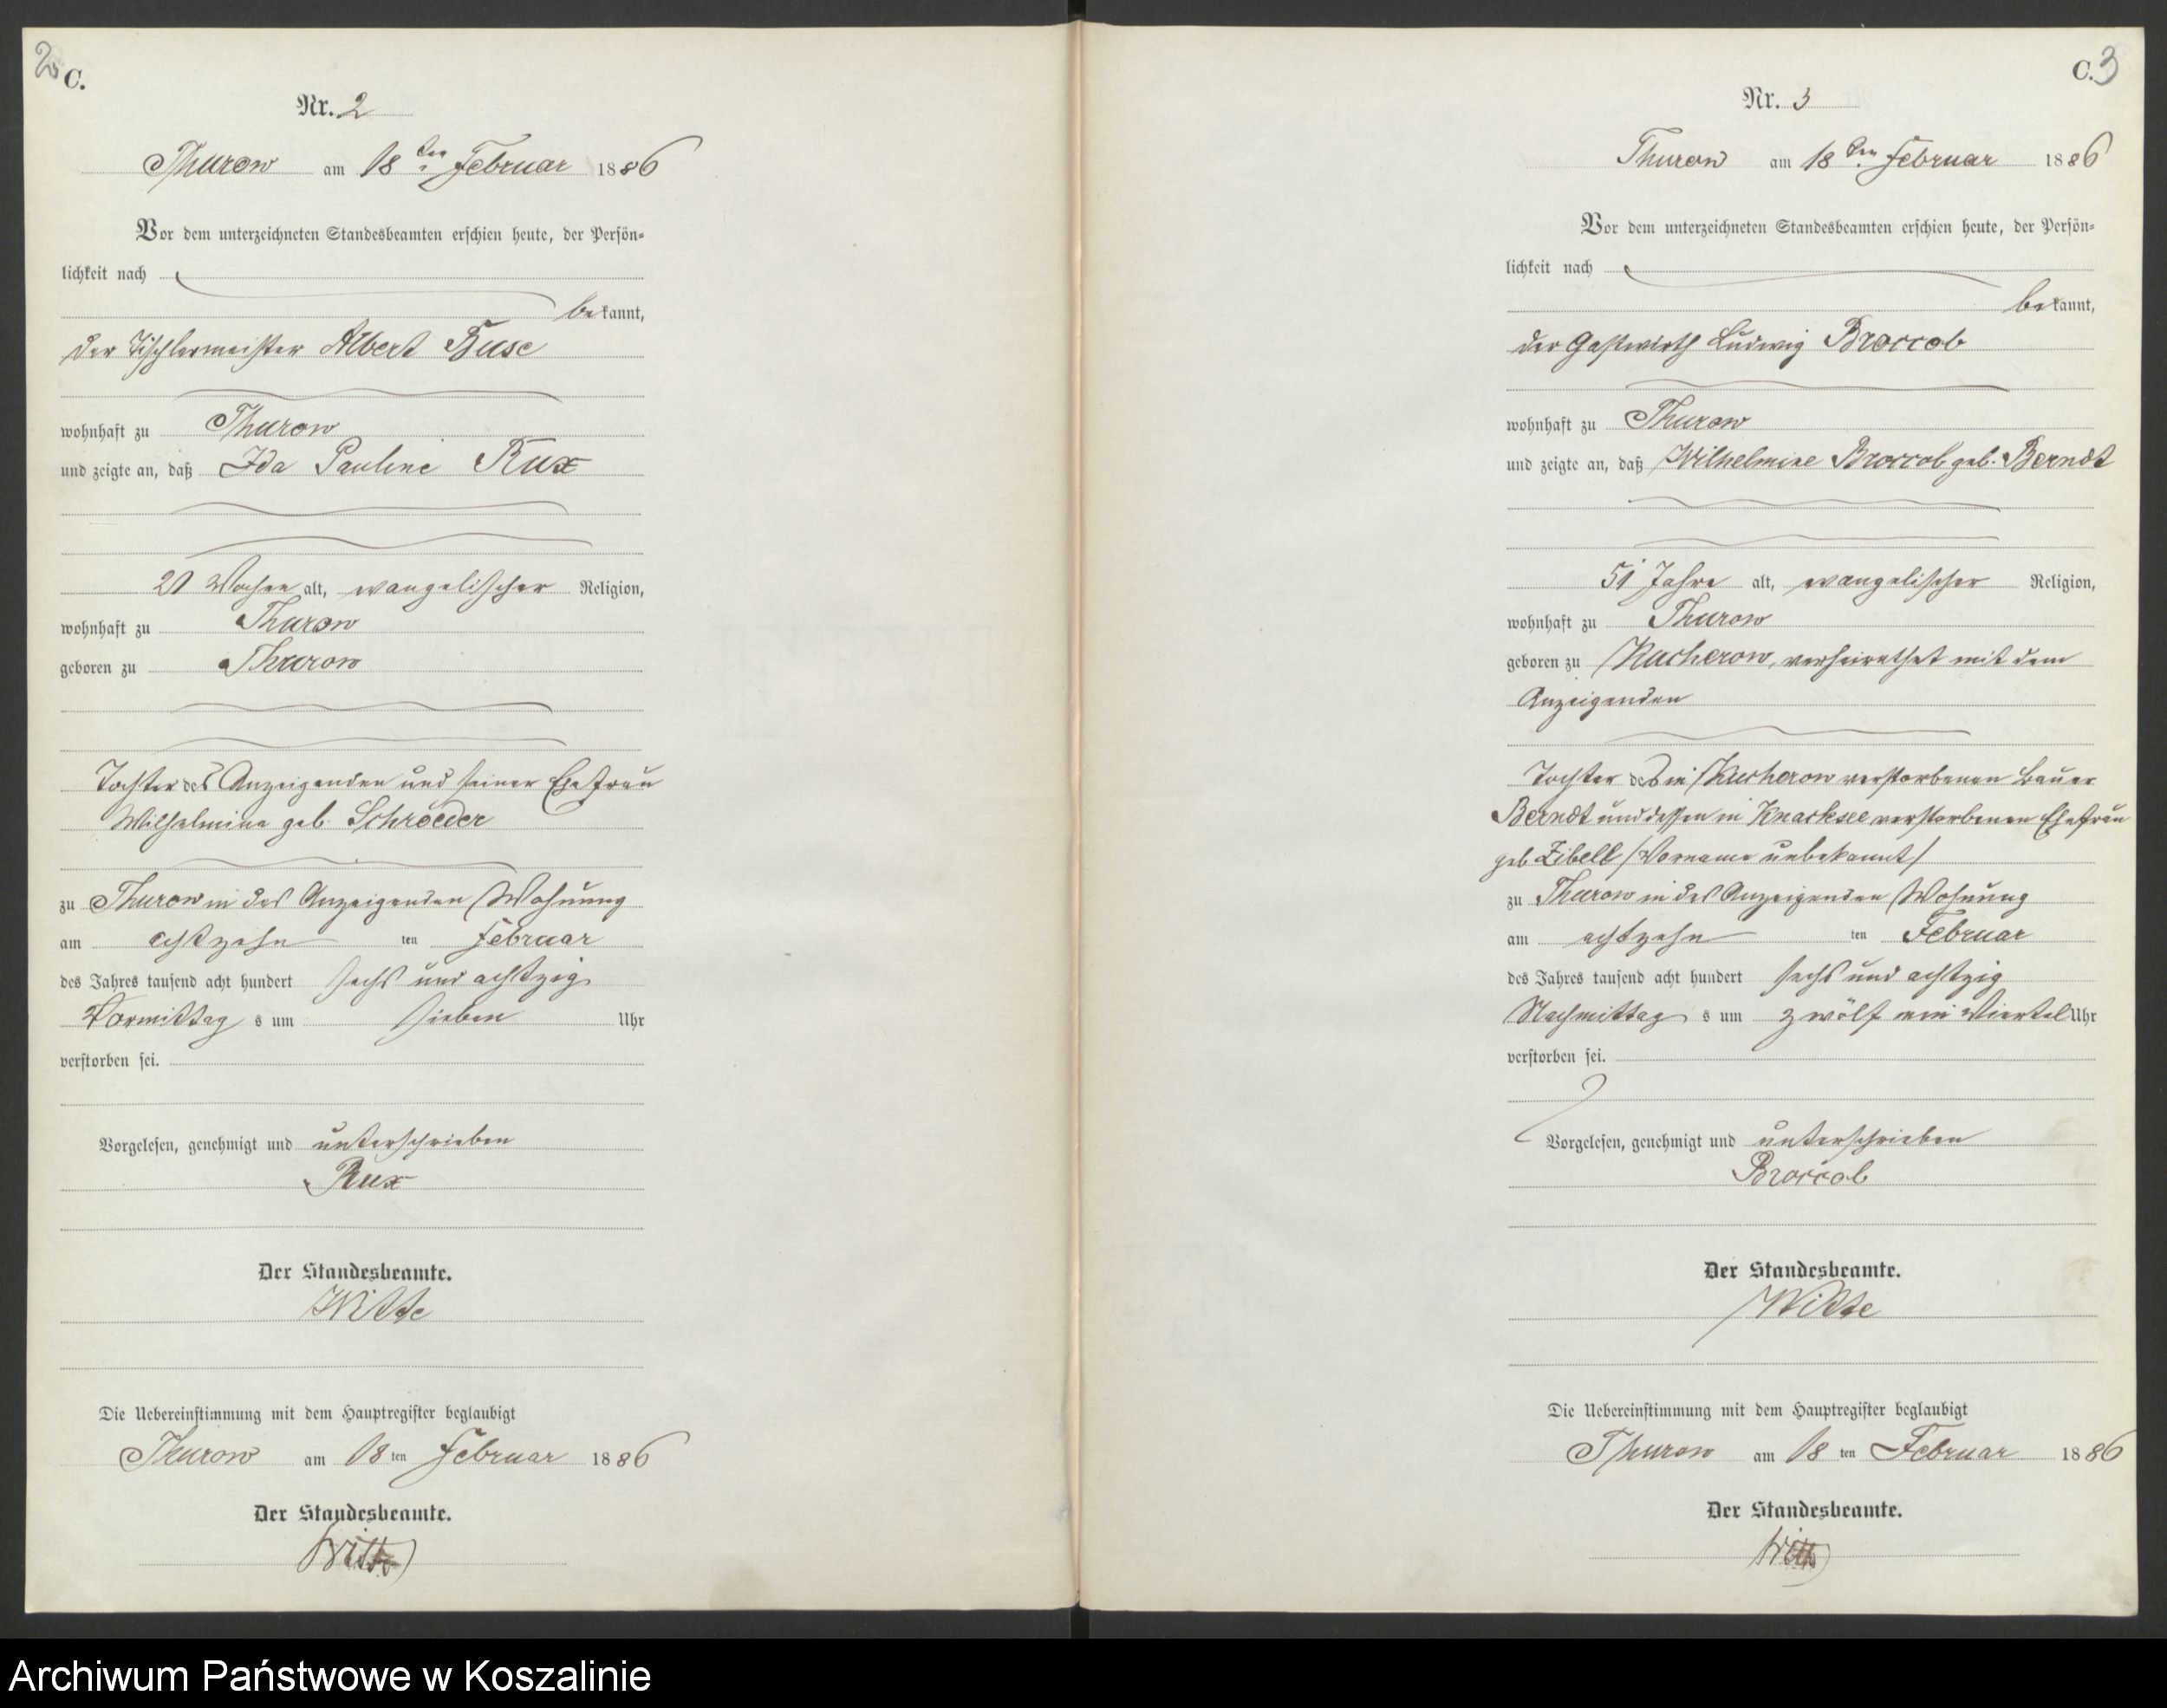 2
C.
Nr. 2
Thurow am 18ten Februar 1886
Vor dem unterzeichneten Standesbeamten erschien heute, der Persön-
lichkeit nach
bekannt,
der Tischlermeister Albert
wohnhaft zu Thurow
und zeigte an, daß Ida Pauline Rux
Wochen alt, evangelischer Religion,
wohnhaft zu Thurow
geboren zu Thurow
Tochter des Anzeigenden und seiner Ehefrau
Wilhelmine geb. Schroeder
zu Thurow in des Anzeigenden Wohnung
am achtzehn ten Februar
des Jahres tausend acht hundert sechs und achtzig
Vormittag s um sieben Uhr
verstorben sei.
Vorgelesen, genehmigt und unterschrieben
Rux
Der Standesbeamte.
Witte
Die Uebereinstimmung mit dem Hauptregister beglaubigt
Thurow am 18 ten Februar 1886
Der Standesbeamte.
Witte
C. 3
Nr. 3
Thurow am 18ten Februar 1886
Vor dem unterzeichneten Standesbeamten erschien heute, der Persön-
lichkeit nach
bekannt,
der Gastwirth Ludwig Broccob
wohnhaft zu Thurow
und zeigte an, daß Wilhelmine Broccob geb. Berndt
51 Jahre alt, evangelischer Religion,
wohnhaft zu Thurow
geboren zu Kucherow, verheirathet mit dem
Anzeigenden
Tochter des in Kucherow verstorbenen Bauer
Berndt und dessen in Knacksee verstorbenen Ehefrau
geb Zibell /Vorname unbekannt/
zu Thurow in des Anzeigenden Wohnung
am achtzehn ten Februar
des Jahres tausend acht hundert sechs und achtzig
Nachmittag s um zwölf ein Viertel Uhr
verstorben sei.
Vorgelesen, genehmigt und unterschrieben
Broccob
Der Standesbeamte.
Witte
Die Uebereinstimmung mit dem Hauptregister beglaubigt
Thurow am 18 ten Februar 1886
Der Standesbeamte.
Witte
Archiwum Państwowe w Koszalinie